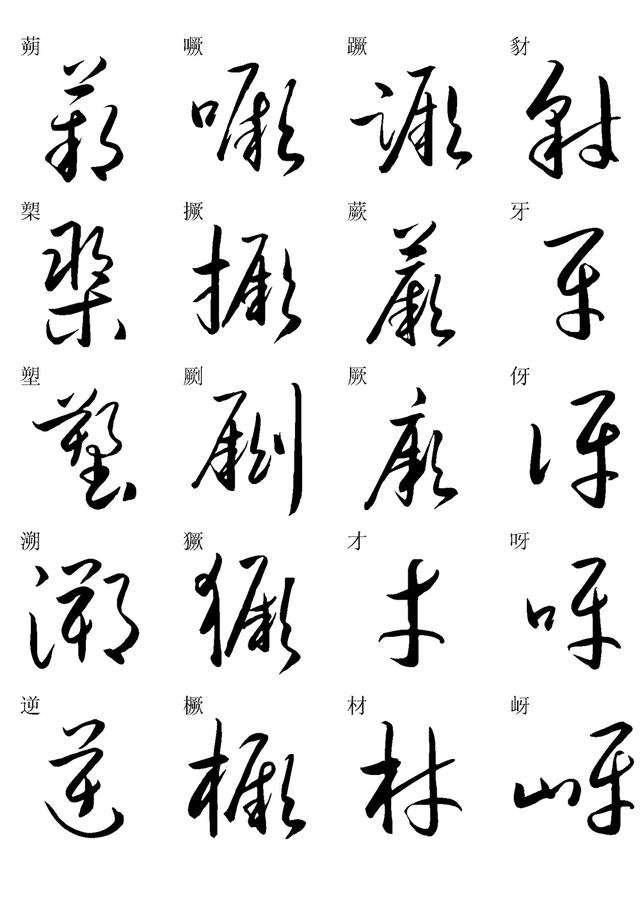 蒴 噘 蹶 豺
槊 撅 蕨 牙
塑 劂 厥 伢
溯 獗 才 呀
逆 橛 材 岈